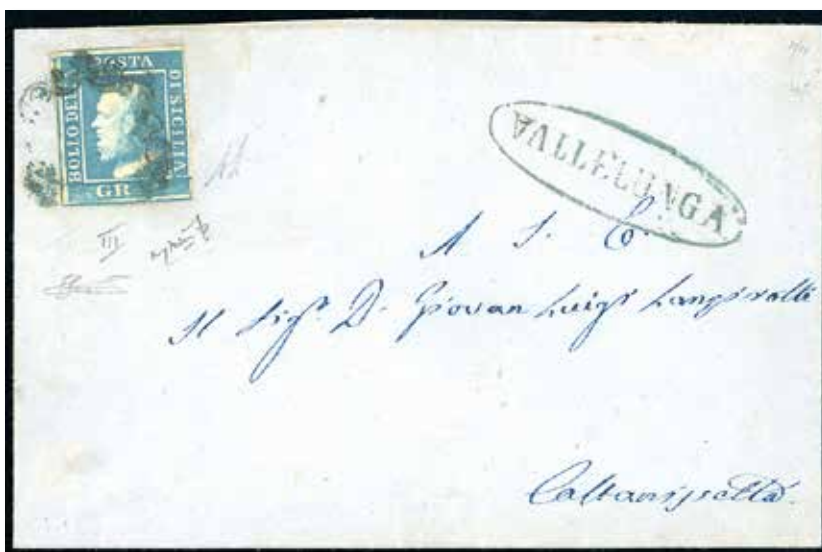 BOLLO DELLA POSTA DI SICILIA
GR
VALLELUNGA
III
A S. E.
Il Sigr. D. Giovan Luigi
Caltanissetta